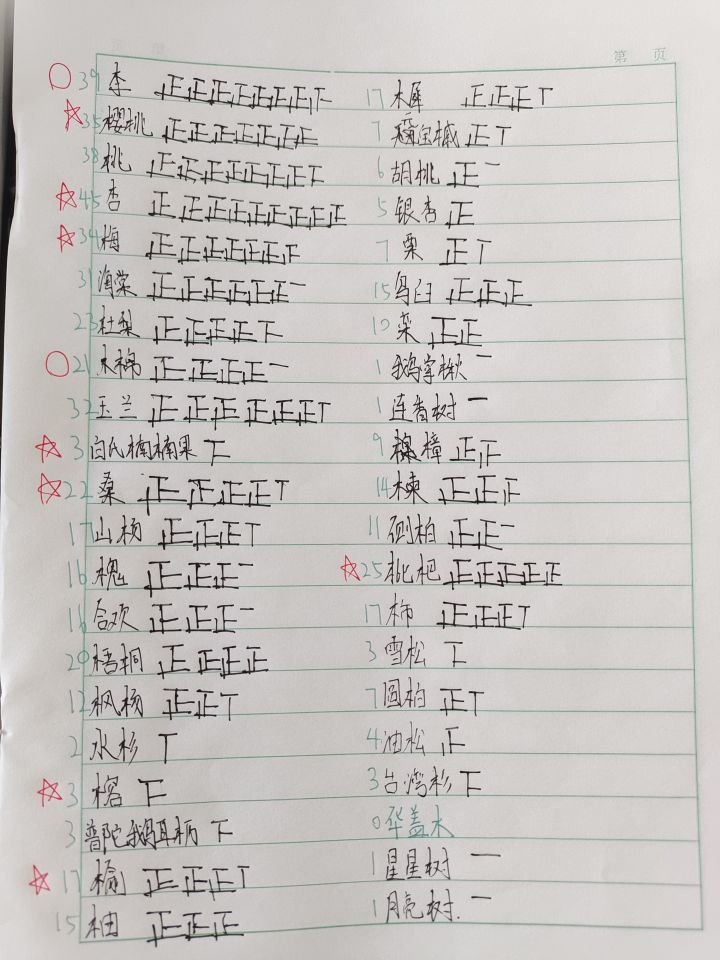 第 页
39 李 正正正正正正正下
35 樱桃 正正正正正正正
38 桃 正正正正正正正下
45 杏 正正正正正正正正正
34 梅 正正正正正正
31 海棠 正正正正正正一
23 杜梨 正正正正下
21 木棉 正正正正一
32 玉兰 正正正正正正丅
3 白氏楠楠果 下
22 桑 正正正正丅
17 山杨 正正正丅
16 槐 正正正一
16 合欢 正正正一
20 梧桐 正正正正
12 枫杨 正正丅
2 水杉 丅
3 榕 下
3 普陀鹅耳枥 下
17 榆 正正正丅
15 柚 正正正
17 木犀 正正正丅
7 宝槭 正丅
6 胡桃 正一
5 银杏 正
7 栗 正丅
15 乌臼 正正正
10 栾 正正
1 鹅掌楸 一
1 连香树 一
9 樟 正正
14 楝 正正正
11 侧柏 正正一
25 枇杷 正正正正正
17 柿 正正正丅
3 雪松 下
7 圆柏 正丅
4 油松 正
3 台湾杉 下
0 华盖木
1 星星树 一
1 月亮树. 一